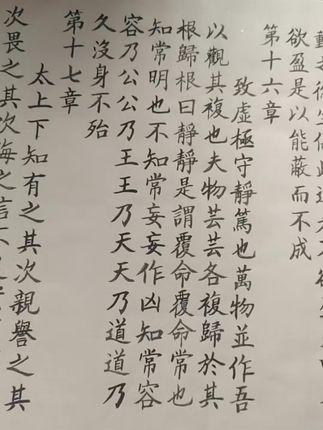 欲盈是以能蔽而不成
第十六章
致虛極守靜篤也萬物並作吾
以觀其複也夫物芸芸各複歸於其
根歸根曰靜靜是謂覆命覆命常也
知常明也不知常妄妄作凶知常容
容乃公公乃王王乃天天乃道道乃
久沒身不殆
第十七章
太上下知有之其次親譽之其
次畏之其次侮之信不